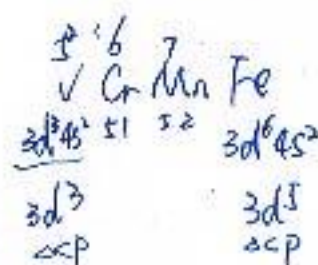 5 6 7
V Cr Mn Fe
3d³4s² 51 52 3d⁶4s²
3d³ 3d⁵
Δ<P Δ<P